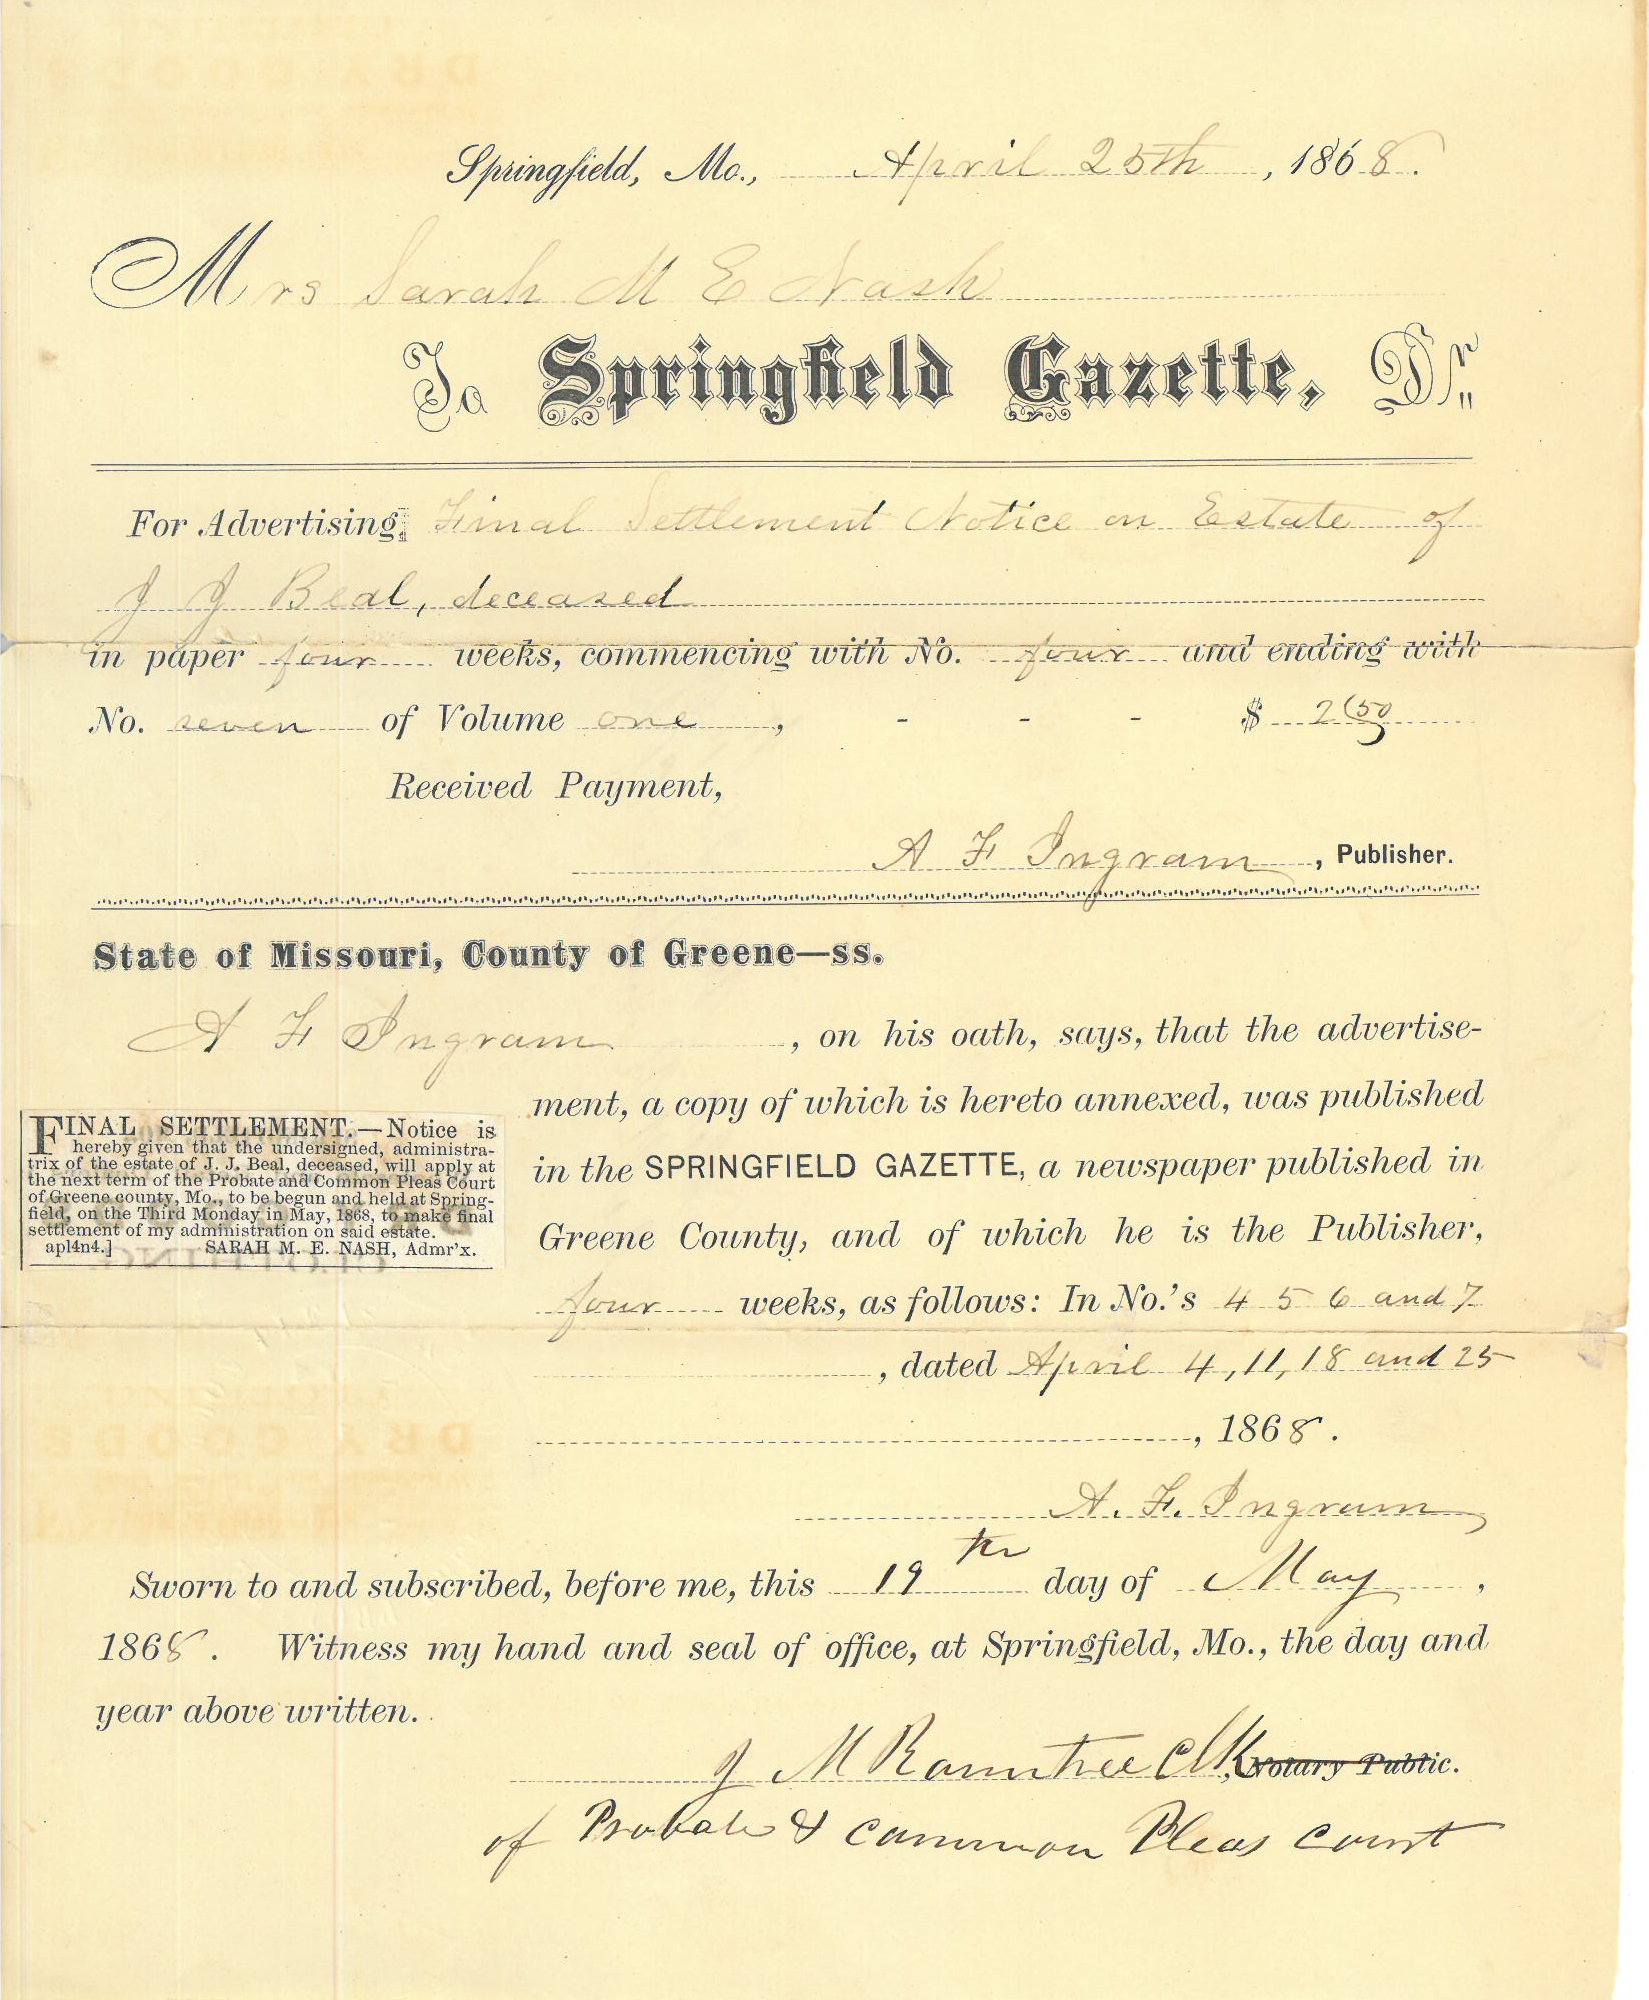 Springfield, Mo., April 25th, 1868.
Mrs Sarah M E Nash
To Springfield Gazette, Dr.
For Advertising, Final Settlement Notice on Estate of
J J Beal, deceased
in paper four weeks, commencing with No. four and ending with
No. seven of Volume one, - - - $ 2 50
Received Payment,
A F Ingram, Publisher.
State of Missouri, County of Greene—ss.
A F Ingram, on his oath, says, that the advertise-
ment, a copy of which is hereto annexed, was published
in the SPRINGFIELD GAZETTE, a newspaper published in
Greene County, and of which he is the Publisher,
four weeks, as follows: In No.'s 4 5 6 and 7
, dated April 4, 11, 18 and 25
, 1868.
A. F. Ingram
FINAL SETTLEMENT.—Notice is
hereby given that the undersigned, administra-
trix of the estate of J. J. Beal, deceased, will apply at
the next term of the Probate and Common Pleas Court
of Greene county, Mo., to be begun and held at Spring-
field, on the Third Monday in May, 1868, to make final
settlement of my administration on said estate.
apl4n4.] SARAH M. E. NASH, Admr'x.
Sworn to and subscribed, before me, this 19th day of May,
1868. Witness my hand and seal of office, at Springfield, Mo., the day and
year above written.
J M Rountree Clk, Notary Public.
of Probate & Common Pleas Court